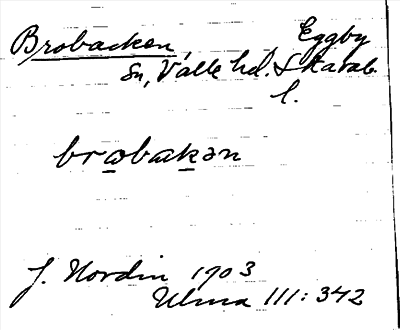 Brobacken, Eggby
Sn, Valle hd. Skarab.
l.
brωbakən
J. Nordin 1903
Ulma 111:342